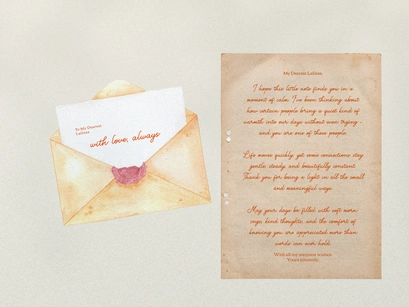 To My Dearest
Lailass
with love, always
My Dearest Lailass
I hope this little note finds you in a
moment of calm. I've been thinking about
how certain people bring a quiet kind of
warmth into our days without even trying -
and you are one of those people.
Life moves quickly, yet some connections stay
gentle, steady, and beautifully constant.
Thank you for being a light in all the small
and meaningful ways.
May your days be filled with soft morn-
ings, kind thoughts, and the comfort of
knowing you are appreciated more than
words can ever hold.
With all my warmest wishes